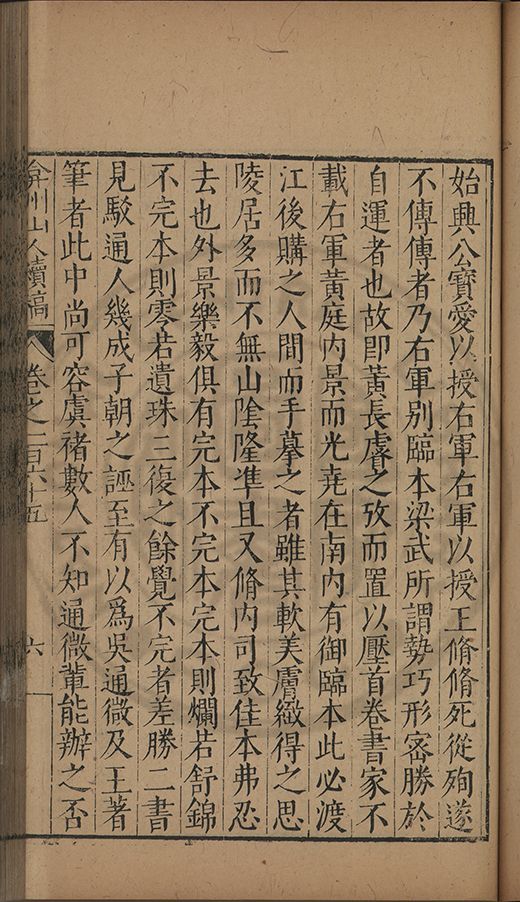 始興公寶愛以授右軍右軍以授王脩脩死從殉遂
不傳傳者乃右軍别臨本梁武所謂勢巧形宻勝於
自運者也故即黃長睿之攷而置以壓首卷書家不
載右軍黃庭内景而光堯在南内有御臨本此必渡
江後購之人間而手摹之者雖其軟美膚緻得之思
陵居多而不無山隂隆凖且又脩内司致佳本弗忍
去也外景樂毅俱有完本不完本完本則爛若舒錦
不完本則零若遺珠三復之餘覺不完者差勝二書
見駁通人幾成子朝之誣至有以爲吳通微及王著
筆者此中尚可容虞褚數人不知通微輩能辦之否
弇州山人續稿 卷之一百六十五 六